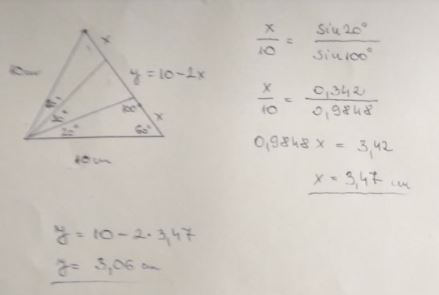 x
10 cm
y = 10 - 2x
20°
100°
x
60°
10 cm
x/10 = sin 20°/sin 100°
x/10 = 0,342/0,9848
0,9848 x = 3,42
x = 3,47 cm
y = 10 - 2 · 3,47
y = 3,06 cm